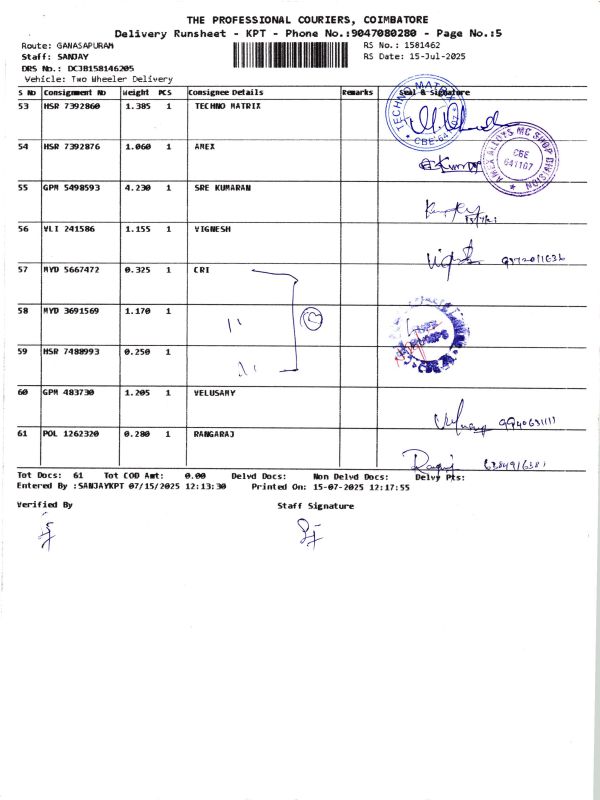 THE PROFESSIONAL COURIERS, COIMBATORE
Delivery Runsheet - KPT - Phone No.:9047080280 - Page No.:5
Route: GANASAPURAM RS No.: 1581462
Staff: SANJAY RS Date: 15-Jul-2025
DRS No.: DCJB158146205
Vehicle: Two Wheeler Delivery
S No Consignment No Weight PCS Consignee Details Remarks Seal & Signature
53 HSR 7392860 1.385 1 TECHNO MATRIX
TECHNO MATRIX
CBE-641107
54 HSR 7392876 1.060 1 AMEX
AMEX ALLOYS MC SHOP DIVISION
CBE
641107
55 GPM 5498593 4.230 1 SRE KUMARAN
56 VLI 241586 1.155 1 VIGNESH
57 MYD 5667472 0.325 1 CRI
58 MYD 3691569 1.170 1
59 HSR 7488993 0.250 1
60 GPM 483730 1.205 1 VELUSAMY
61 POL 1262320 0.280 1 RANGARAJ
Tot Docs: 61 Tot COD Amt: 0.00 Delvd Docs: Non Delvd Docs: Delvy Pts:
Entered By :SANJAYKPT 07/15/2025 12:13:30 Printed On: 15-07-2025 12:17:55
Verified By Staff Signature